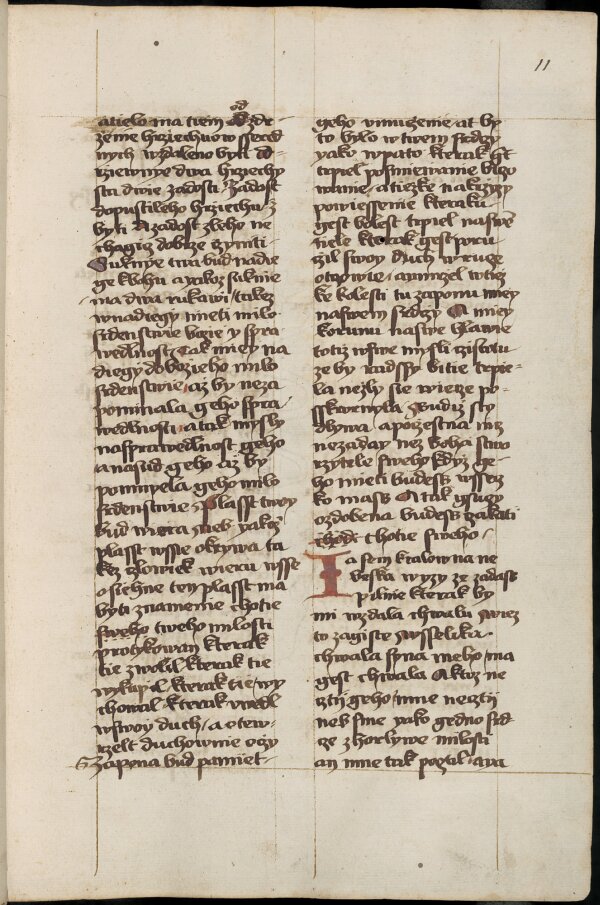 11
od
atielo ma tiem zdr-
zenie hrziechuow srdeč
nych wzdaleno byti od
rziewnye dwa hrziechy
sta dwie zadosti Zadost
dopustileho hrziechu z
byti A zadost zleho ne
chagicz dobrze czyniti
Suknye twa bud nadie
ge kbohu a yakoz suknie
ma dwa rukawi takez
w nadiegy mieti milo
srdenstwie bozie y spra
wedlnost Tak miey na
diegy do bozieho milo
srdenstwie az by neza
pominala geho spra
wedlnosti a tak mysly
na sprawedlnost geho
a nasud geho az by
pomnyela geho milo
srdenstwie Plasst twoy
bud wiera Neb yakoz
plasst wsse okrywa ta
kez czlowiek wieru wsse
osiehne ten plasst ma
byti znamenie chotie
sweho tweho milosti
protykowan kterak
tie zwolil kterak tie
wykupil kterak tie wy
chowal kterak uwedl
wswoy duch a otew-
rzelt duchownie oczy
Zapona bud pamiet
geho umuczenie at by
to bylo w twem srdczy
yako wpato kterak gest
trpiel posmiewanie biczo
wanie a tiezke na krzyzy
powiessenie kteraku
gest bolest trpiel na swe
tiele kterak gest poru
czil swoy duch w ruce
otczowie a umrzel w tiez
ke bolesti tu zaponu miey
na swem srdczy A miey
korunu na swe hlawie
totiz w swe mysli czistotu
ze by radssy bitie trpie-
la nezly sie wiecze po-
sskwrnyla Budiz sty
dliwa a poczestna nicz
nezaday nez boha stwo
rzytele sweho kdyz ge-
ho mieti budess wssecz
ko mass A tak gsucy
ozdobena budess czakati
chotie sweho
Ia sem kralowna ne
beska wyzy ze zadass
pilnie kterak by
mi wzdala chwalu wiez
to zagiste wsselika
chwala syna meho ma
gest chwala A ktoz ne
czti geho mne neczti
neb sme yako gedno srd-
cze z horlywe milosti